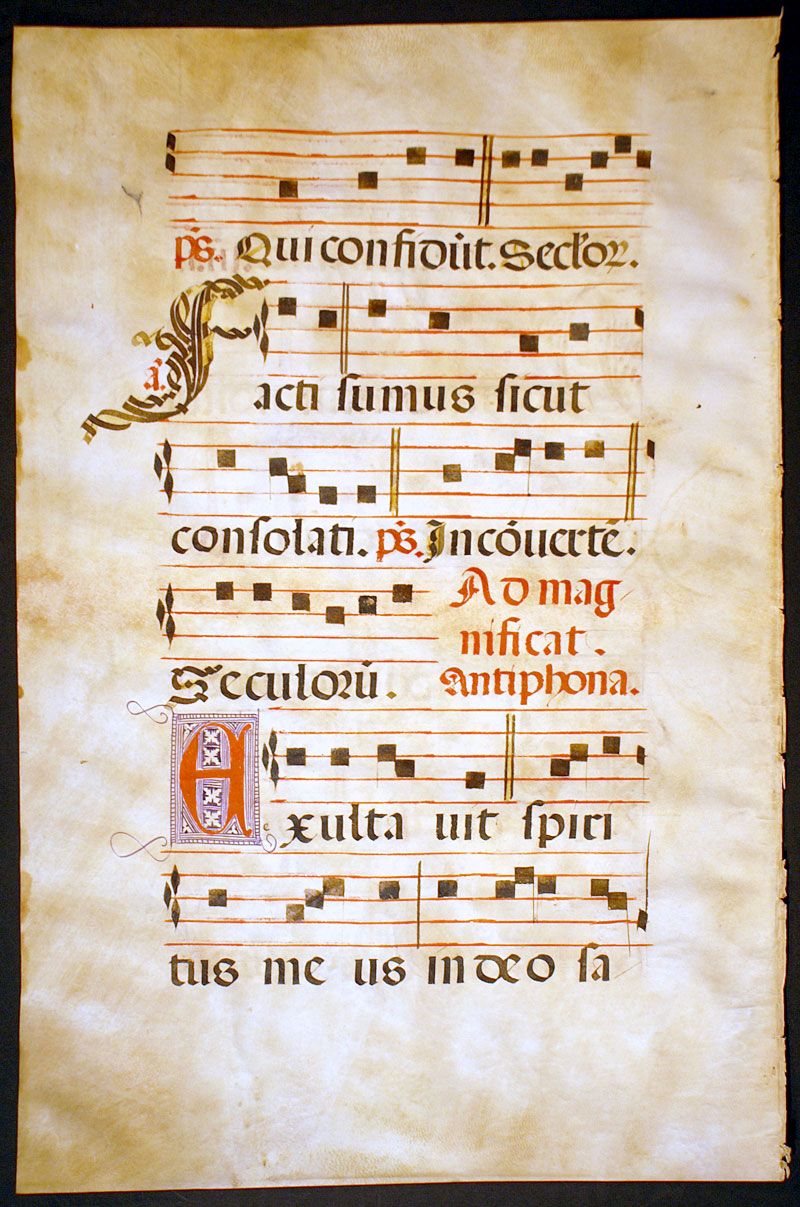 ps. Qui confidūt. Seclor.
a. Facti sumus sicut
consolati. ps. In cōuertē.
Seculorū. Ad mag
nificat.
Antiphona.
Exulta uit spiri
tus me us in deo sa